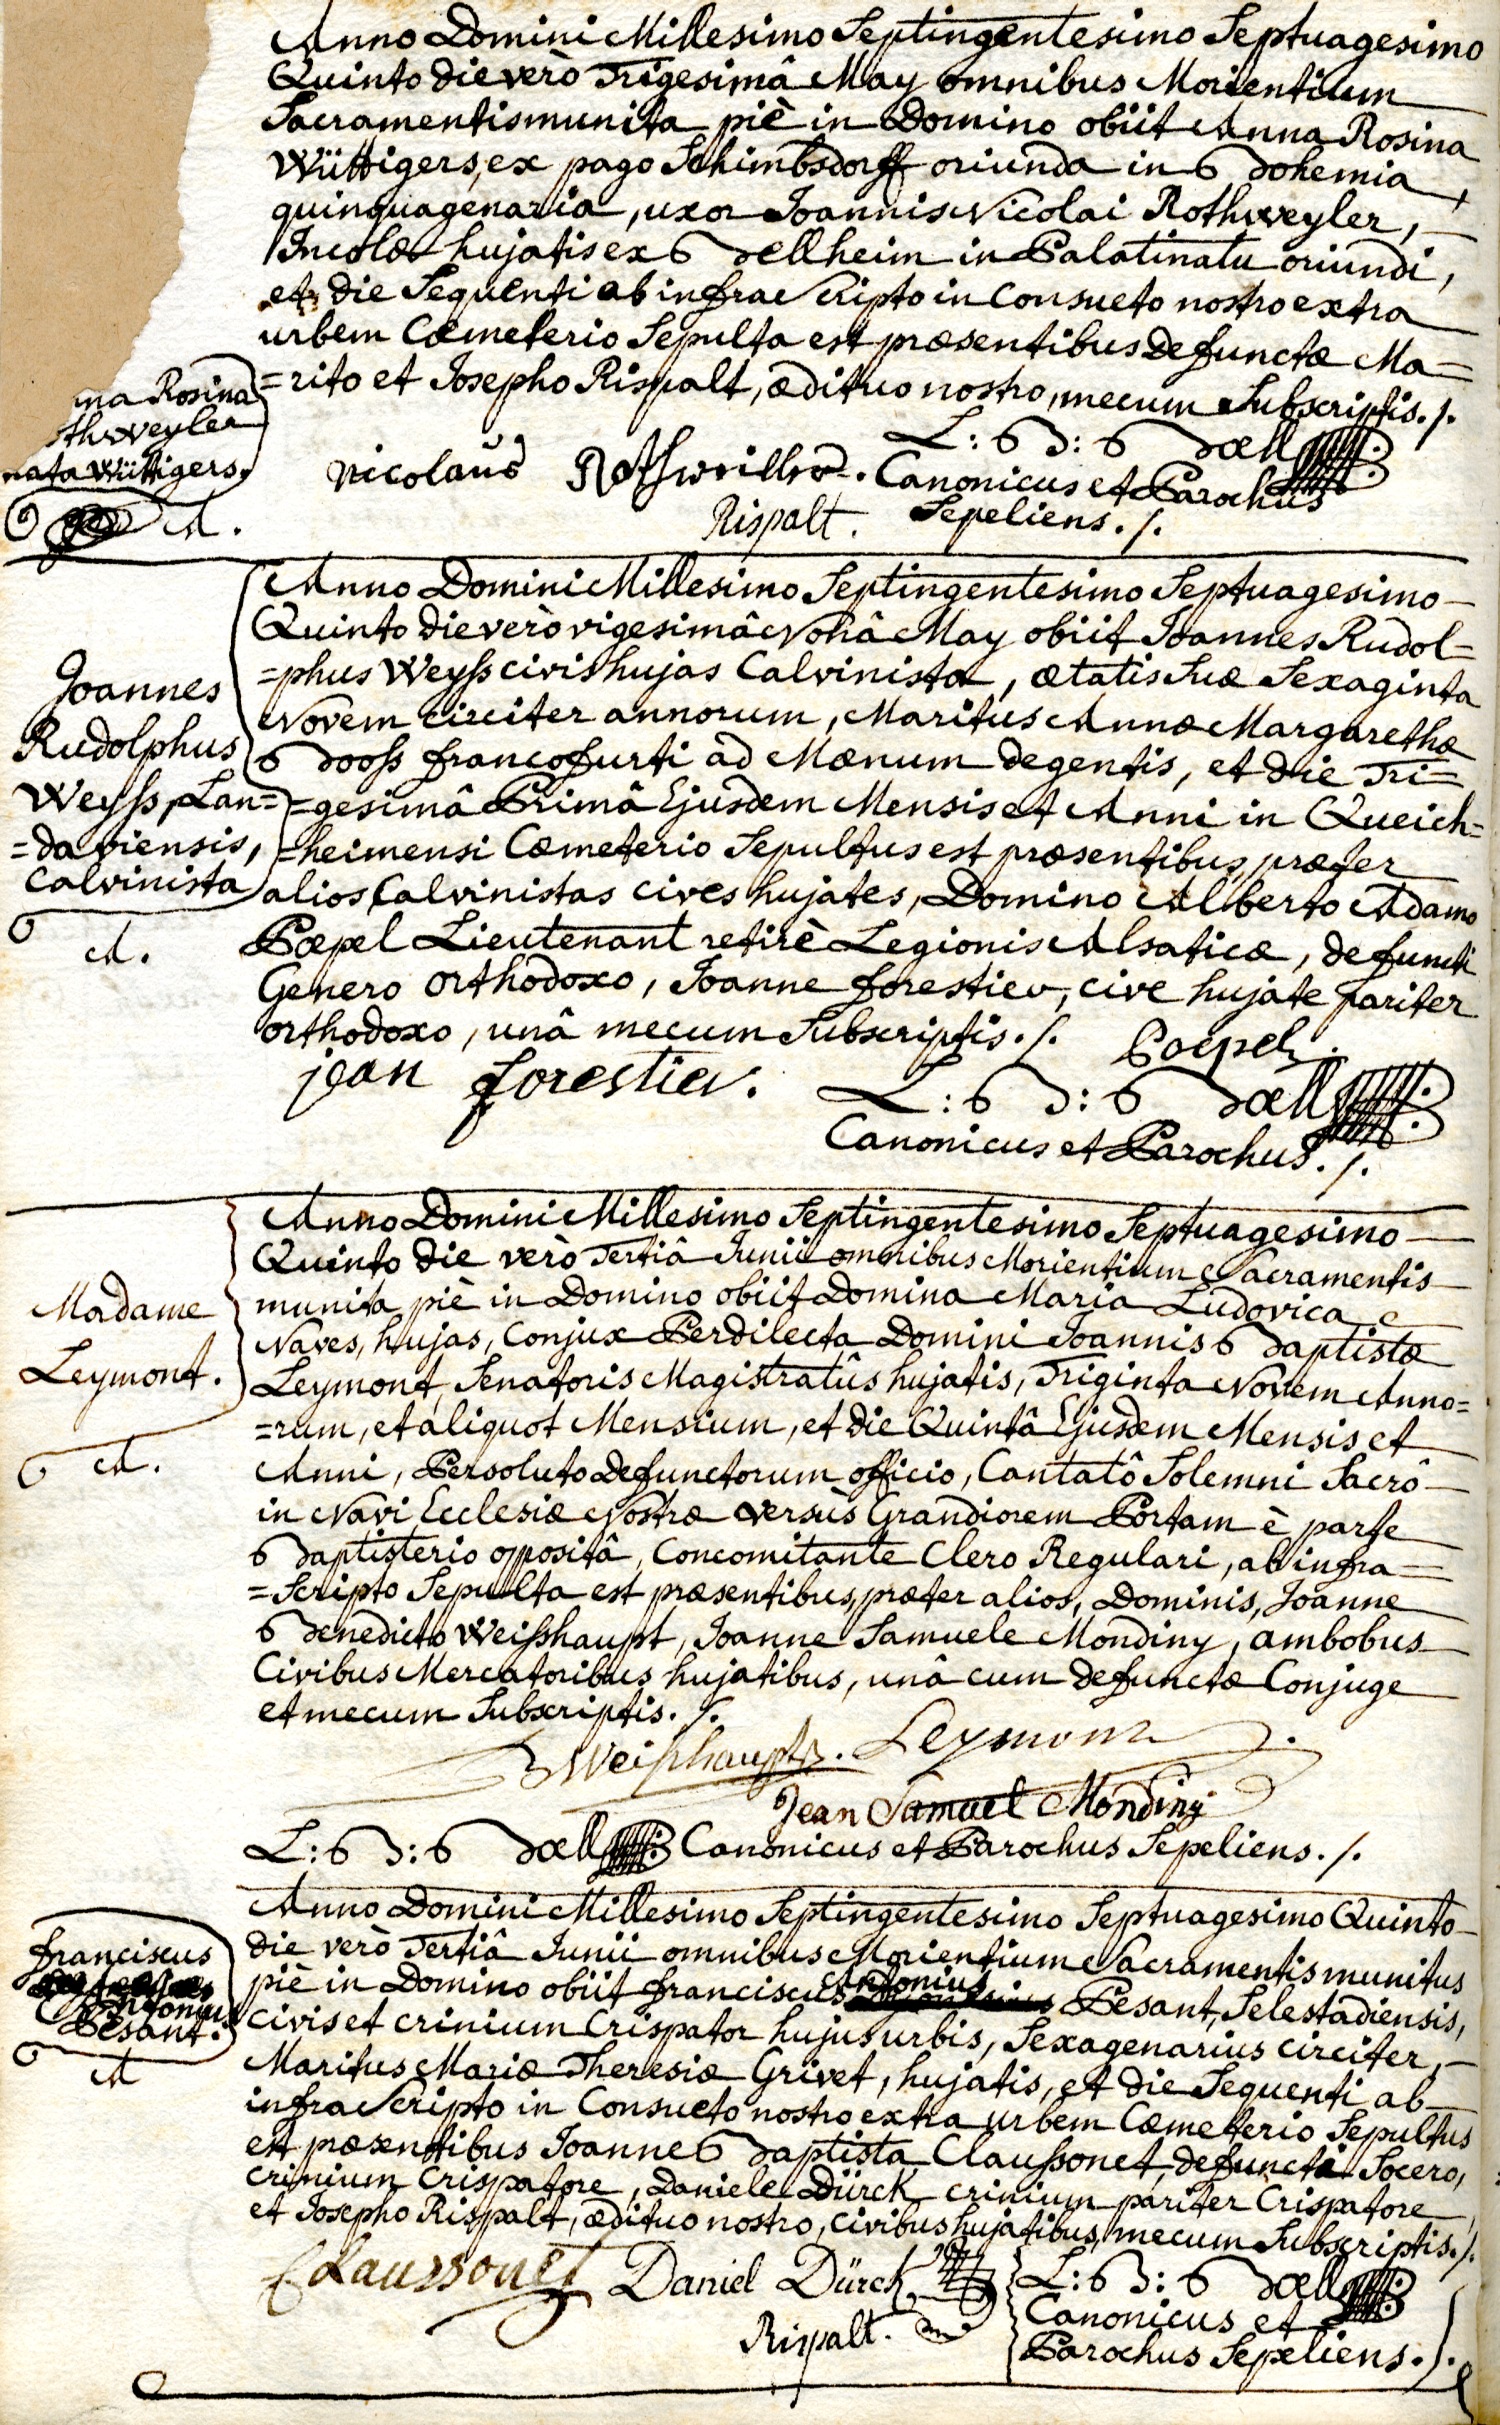 Anno Domini Millesimo Septingentesimo Septuagesimo
Quinto die verò Trigesimâ May omnibus Morientium
Sacramentis munita piè in Domino obiit Anna Rosina
Wüttigers, ex pago Schimbsdorff oriunda in Bohemia,
quinquagenaria, uxor Joannis Nicolai Rothweyler,
Incolæ hujatis ex Bellheim in Palatinatu oriundi,
et die Sequenti ab infra Scripto in Consueto nostro extra
urbem Cœmeterio Sepulta est præsentibus Defunctæ Ma=
=rito et Josepho Rispalt, ædituo nostro, mecum Subscriptis. /.
na Rosina
othweyler
nata Wüttigers.
A.
Nicolaus Rothweiller. L: B: Bæll
Canonicus et Parochus
Rispalt. Sepeliens. /.
Anno Domini Millesimo Septingentesimo Septuagesimo
Quinto die verò vigesimâ Nonâ May obiit Joannes Rudol=
=phus Weyss civis hujas Calvinista, ætatis Suæ Sexaginta
Novem circiter annorum, Maritus Annæ Margarethæ
Booss francofurti ad Mœnum degentis, et die Tri=
=gesimâ Primâ Ejusdem Mensis et Anni in Queich=
=heimensi Cœmeterio Sepultus est præsentibus, præter
alios Calvinistas cives hujates, Domino Alberto Adamo
Pœpel Lieutenant retirè Legionis Alsaticæ, defuncti
Genero orthodoxo, Joanne forestier, cive hujate pariter
orthodoxo, unâ mecum Subscriptis. /. Poepel.
Joannes
Rudolphus
Weyss, Lan=
=daviensis,
Calvinista
A.
jean forestier.
L: B: Bæll
Canonicus et Parochus. /.
Anno Domini Millesimo Septingentesimo Septuagesimo
Quinto die verò Tertiâ Junii omnibus Morientium Sacramentis
munita piè in Domino obiit Domina Maria Ludovica
Naves, hujas, Conjux Perdilecta Domini Joannis Baptistæ
Leymont, Senatoris Magistratûs hujatis, Triginta Novem Anno=
=rum, et aliquot Mensium, et die Quintâ Ejusdem Mensis et
Anni, Persoluto Defunctorum officio, Cantatô Solemni Sacrô
in Navi Ecclesiæ Nostræ versùs Grandiorem Portam è parte
Baptisterio oppositâ, Concomitante Clero Regulari, ab infra=
=Scripto Sepulta est præsentibus, præter alios, Dominis, Joanne
Benedicto Weisshaupt, Joanne Samuele Mondiny, ambobus
Civibus Mercatoribus hujatibus, unâ cum Defunctæ Conjuge
et mecum Subscriptis. /.
Madame
Leymont.
A.
Weisshaupt. Leymont
Jean Samuel Mondiny
L: B: Bæll Canonicus et Parochus Sepeliens. /.
Anno Domini Millesimo Septingentesimo Septuagesimo Quinto
die verò Tertiâ Junii omnibus Morientium Sacramentis munitus
piè in Domino obiit franciscus Antonius Besant, Selestadiensis,
Civis et crinium Crispator hujus urbis, Sexagenarius circiter,
Maritus Mariæ Theresiæ Grivet, hujatis, et die Sequenti ab
infra Scripto in Consueto nostro extra urbem Cœmeterio Sepultus
est præsentibus Joanne Baptista Claussonet, defuncti Socero,
Crinium Crispatore, Daniele Dürck crinium pariter Crispatore
et Josepho Rispalt, ædituo nostro, Civibus hujatibus, mecum Subscriptis. /.
franciscus
Antonius
Besant.
A
Claussonet Daniel Dürck L: B: Bæll
Canonicus et
Rispalt. Parochus Sepeliens. /.